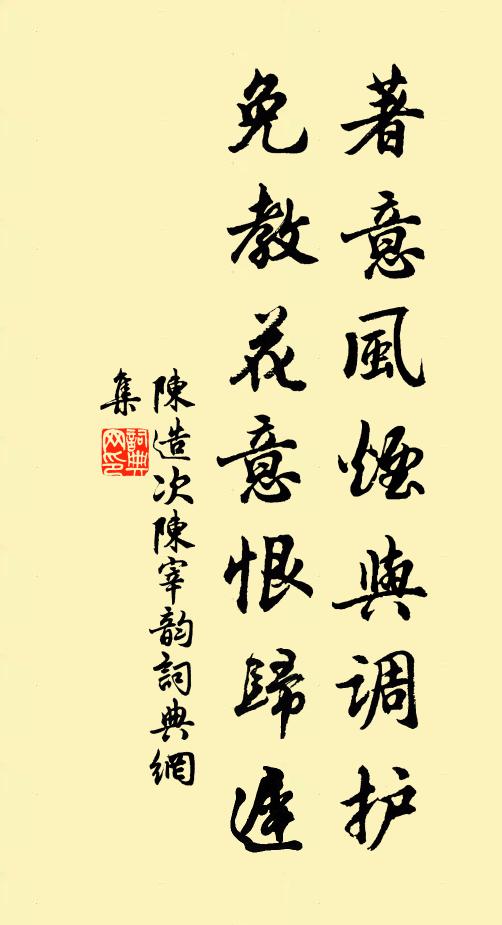 著意風煙與调护
免教花意恨歸遲
陳造次陳宰韵詞典網
集
詞典
网印